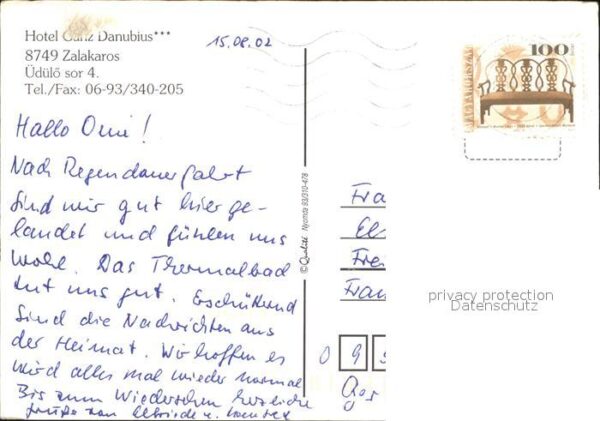 Hotel Ganz Danubius***
8749 Zalakaros
Üdülő sor 4.
Tel./Fax: 06-93/340-205
15.08.02
Hallo Omi!
Nach Regendauerfahrt
sind wir gut hier ge-
landet und fühlen uns
wohl. Das Thermalbad
tut uns gut. Erschütternd
sind die Nachrichten aus
der Heimat. Wir hoffen es
wird alles mal wieder normal
Bis zum Wiedersehen herzliche
Grüße von u.
©Qualität Nyomda 93/310-478
MAGYARORSZÁG
100
Fra
El
Fre
Fran
privacy protection
Datenschutz
0 9 5